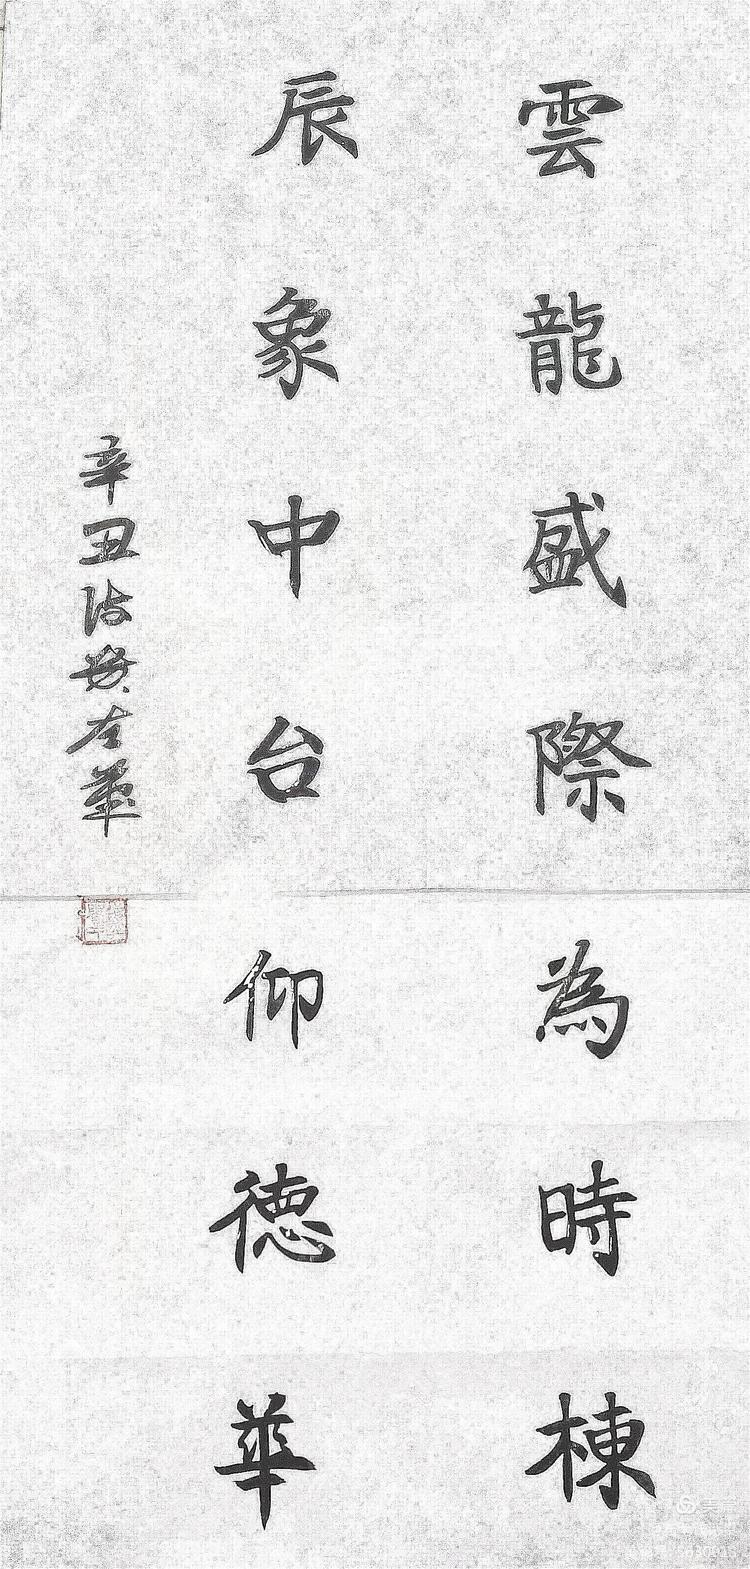 雲龍盛際為時棟
辰象中台仰德華
辛丑